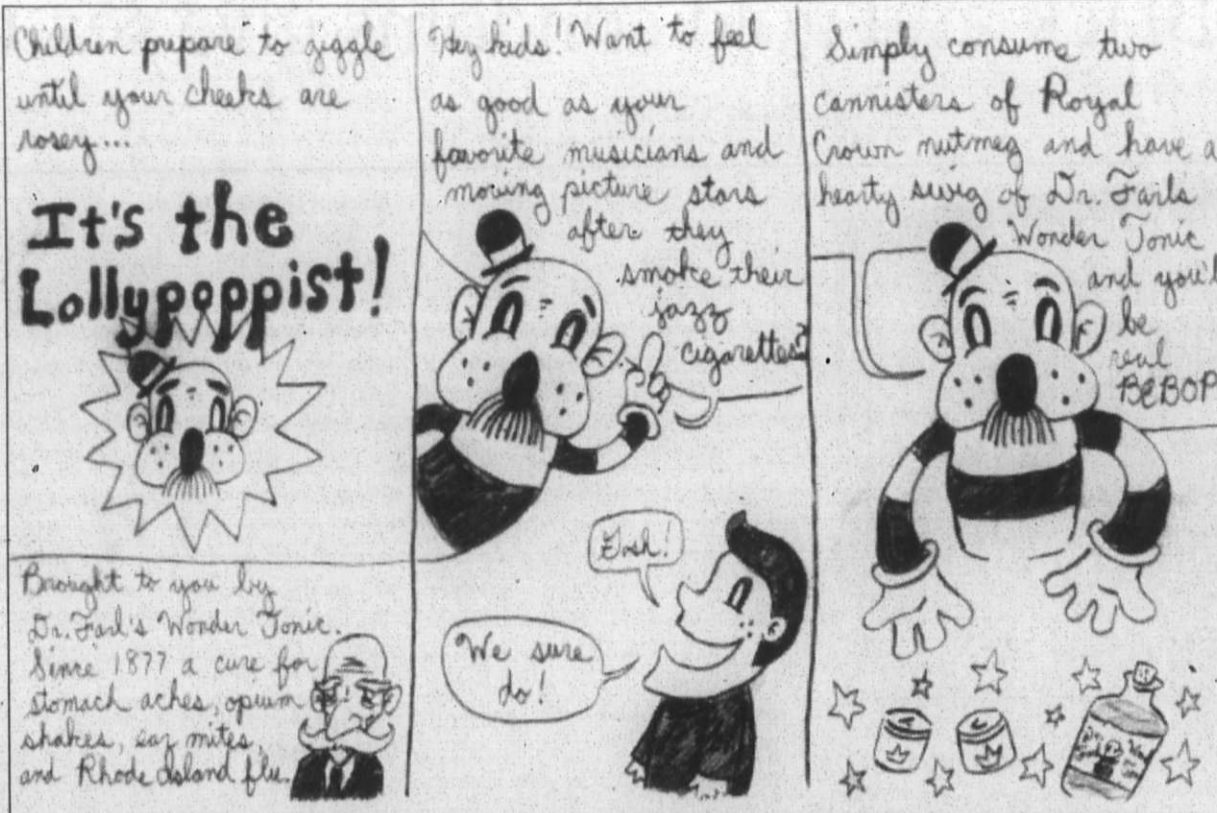 Children prepare to giggle
until your cheeks are
rosey...
It's the
Lollypoppist!
Brought to you by
Dr. Farl's Wonder Tonic.
Since 1877 a cure for
stomach aches, opium
shakes, ear mites,
and Rhode Island flu.
Hey kids! Want to feel
as good as your
favorite musicians and
moving picture stars
after they
smoke their
jazz
cigarettes?
Gosh!
We sure
do!
Simply consume two
cannisters of Royal
Crown nutmeg and have a
hearty swig of Dr. Farls
Wonder Tonic
and you'll
be
real
BEBOP